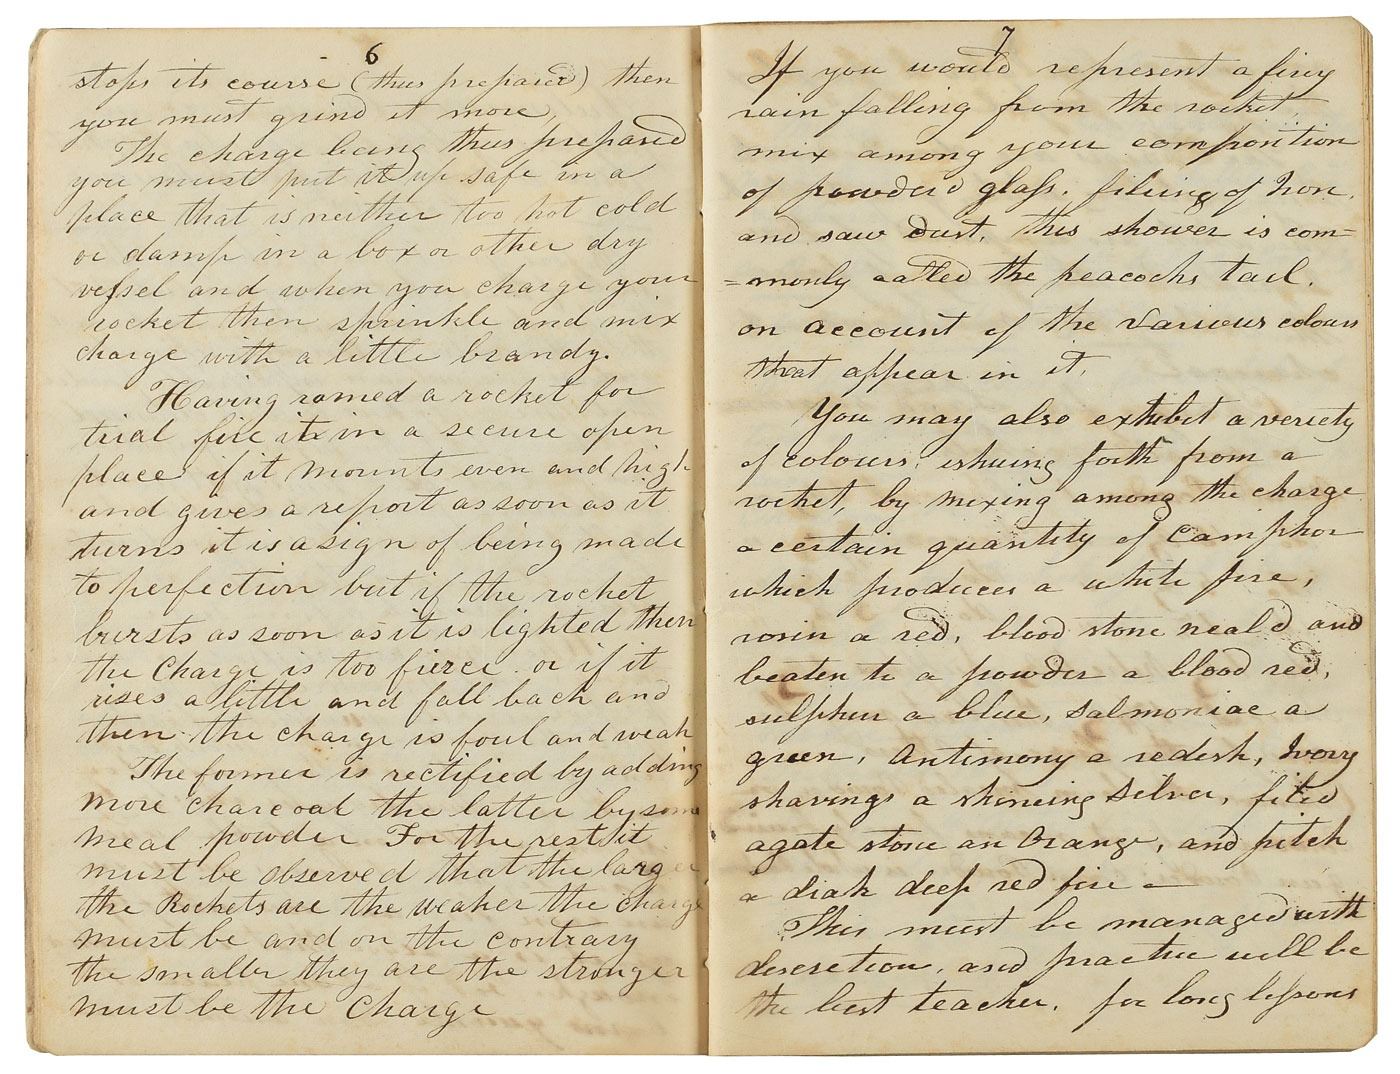 6
stops its course (thus prepared) then
you must grind it more,
The charge being thus prepared
you must put it up safe in a
place that is neither too hot cold
or damp in a box or other dry
vessel and when you charge your
rocket then sprinkle and mix
charge with a little brandy.
Having ramed a rocket for
trial fire it in a secure open
place if it mounts even and high
and gives a report as soon as it
turns it is a sign of being made
to perfection but if the rocket
bursts as soon as it is lighted then
the Charge is too fierce or if it
rises a little and fall back and
then the charge is foul and weak
The former is rectified by adding
more charcoal the latter by some
meal powder For the rest it
must be observed that the larger
the Rockets are the weaker the charge
must be and on the contrary
the smaller they are the stronger
must be the Charge
7
If you would represent a firey
rain falling from the rocket,
mix among your composition
of powderd glass, fileing of Iron,
and saw dust, this shower is com=
=monly called the peacocks tail.
on account of the various colours
that appear in it.
You may also exhibit a veriety
of colours, ishuing forth from a
rocket, by mixing among the charge
a certain quantity of Camphor
which produces a white fire,
rosin a red, blood stone neal'd and
beaten to a powder a blood red,
sulpher a blue, Salmoniac a
green, Antimony a redish, Ivory
shavings a shineing Silver, filed
agate stone an Orange, and pitch
a diak deep red fire —
This must be managed with
descretion, and practice will be
the best teacher, for long lessons